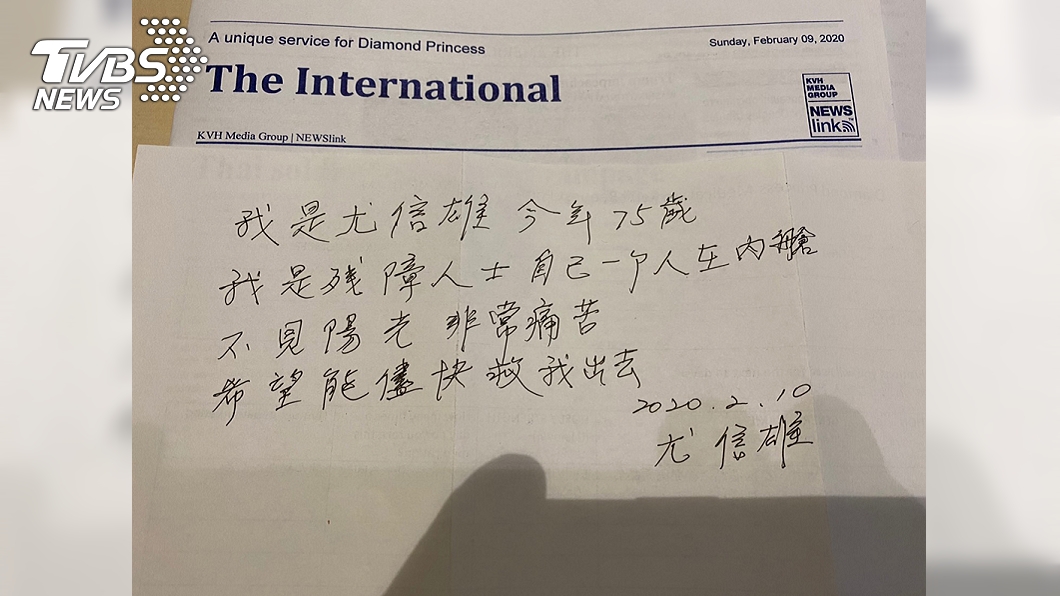 TVBS
NEWS
A unique service for Diamond Princess
Sunday, February 09, 2020
The International
KVH
MEDIA
GROUP
NEWS
link
KVH Media Group | NEWSlink
我是尤信雄 今年75歲
我是残障人士 自己一个人在內艙
不見陽光 非常痛苦
希望能儘快救我出去
2020.2.10
尤信雄